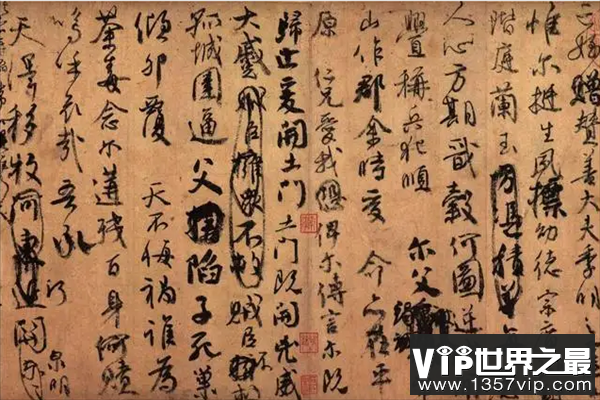 亡姪贈贊善大夫季明之
惟爾挺生夙標幼德宗
階庭蘭玉方憑積善
人心方期戩穀何圖逆
釁稱兵犯順爾父
山作郡余時受命亦在平
原仁兄愛我俾爾傳言爾既
歸止爰開土門土門既開凶威
大蹙賊臣擁眾不救賊臣不
孤城圍逼父陷子死巢
傾卵覆天不悔禍誰為
荼毒念爾遘殘百身何贖
嗚呼哀哉吾承泉明
天澤移牧河關
VIP世界之最
www.1357vip.com